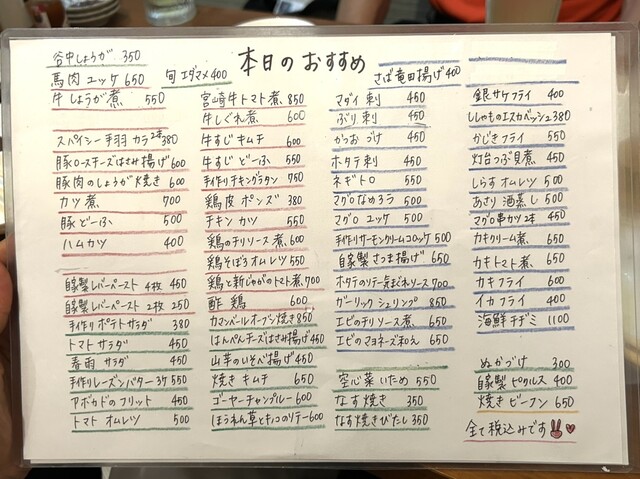 本日のおすすめ
谷中しょうが 350
馬肉ユッケ 650
旬エダマメ 400
牛しょうが煮 550
スパイシー手羽カラ2本 380
豚ロースチーズはさみ揚げ 600
豚肉のしょうが焼き 600
カツ煮 700
豚どーふ 500
ハムカツ 400
自家製レバーペースト 4枚 450
自家製レバーペースト 2枚 250
手作りポテトサラダ 380
トマトサラダ 450
春雨サラダ 450
手作りレーズンバター3ケ 550
アボカドのフリット 450
トマトオムレツ 500
宮崎牛トマト煮 850
牛しぐれ煮 600
牛すじキムチ 600
牛すじどーふ 550
手作りチキングラタン 750
鶏皮ポンズ 380
チキンカツ 550
鶏のチリソース煮 600
鶏そぼろオムレツ 550
鶏と新じゃがのトマト煮 700
酢鶏 600
カマンベールオーブン焼き 850
はんぺんチーズはさみ揚げ 450
山芋のいそべ揚げ 450
焼きキムチ 650
ゴーヤーチャンプルー 600
ほうれん草とキノコのソテー 600
さば竜田揚げ 400
マダイ刺 450
ぶり刺 450
かつおづけ 450
ホタテ刺 450
ネギトロ 550
マグロなめろう 500
マグロユッケ 500
手作りサーモンクリームコロッケ 500
自家製さつま揚げ 650
ホタテのソテー気まぐれソース 700
ガーリックシュリンプ 850
エビのチリソース煮 650
エビのマヨネーズ和え 650
空心菜いため 550
なす焼き 350
なす焼きびたし 350
銀サケフライ 400
ししゃものエスカベッシュ 380
かじきフライ 550
灯台つぶ貝煮 450
しらすオムレツ 500
あさり酒蒸し 500
マグロ串カツ2本 450
カキクリーム煮 650
カキトマト煮 650
カキフライ 600
イカフライ 400
海鮮チヂミ 1100
ぬかづけ 300
自家製ピクルス 400
焼きビーフン 650
全て税込みです